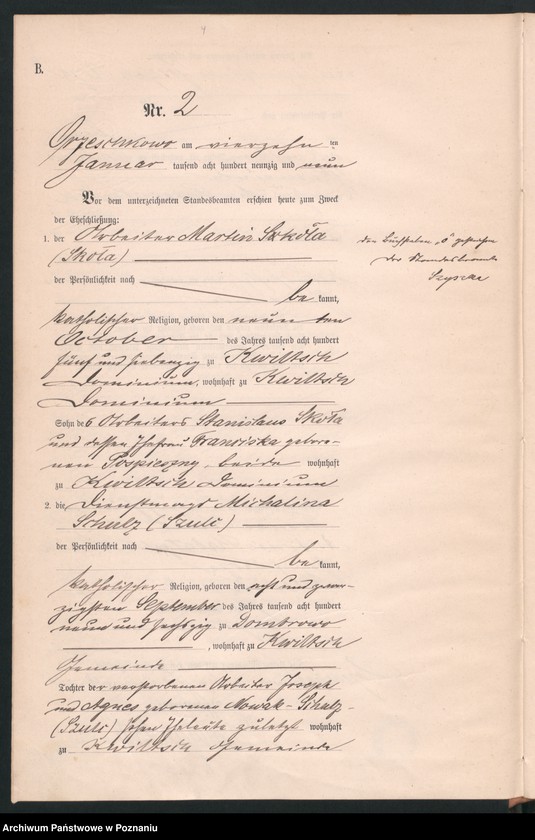 B.
Nr. 2
Orzeschkowo am vierzehn ten
Januar tausend acht hundert neunzig und neun
Vor dem unterzeichneten Standesbeamten erschien heute zum Zweck
der Eheschließung:
1. der Arbeiter Martin Sskóła
(Skóła)
der Persönlichkeit nach
be kannt,
katholischer Religion, geboren den neun ten
October des Jahres tausend acht hundert
fünf und siebenzig zu Kwiltsch
Dominium, wohnhaft zu Kwiltsch
Dominium
Sohn des Arbeiters Stanislaus Skóła
und dessen Ehefrau Franciska gebore-
nen Pospieszny beide wohnhaft
zu Kwiltsch Dominium
2. die Dienstmagd Michalina
Schulz (Szulc)
der Persönlichkeit nach
be kannt,
katholischer Religion, geboren den acht und zwan-
zigsten September des Jahres tausend acht hundert
neun und sechszig zu Dombrowo
, wohnhaft zu Kwiltsch
Gemeinde
Tochter der verstorbenen Arbeiter Joseph
und Agnes geborenen Nowak - Schulz-
(Szulc) Eheleute zuletzt wohnhaft
zu Kwiltsch Gemeinde
den Buchstaben "ó" gestrichen
Der Standesbeamte
Archiwum Państwowe w Poznaniu